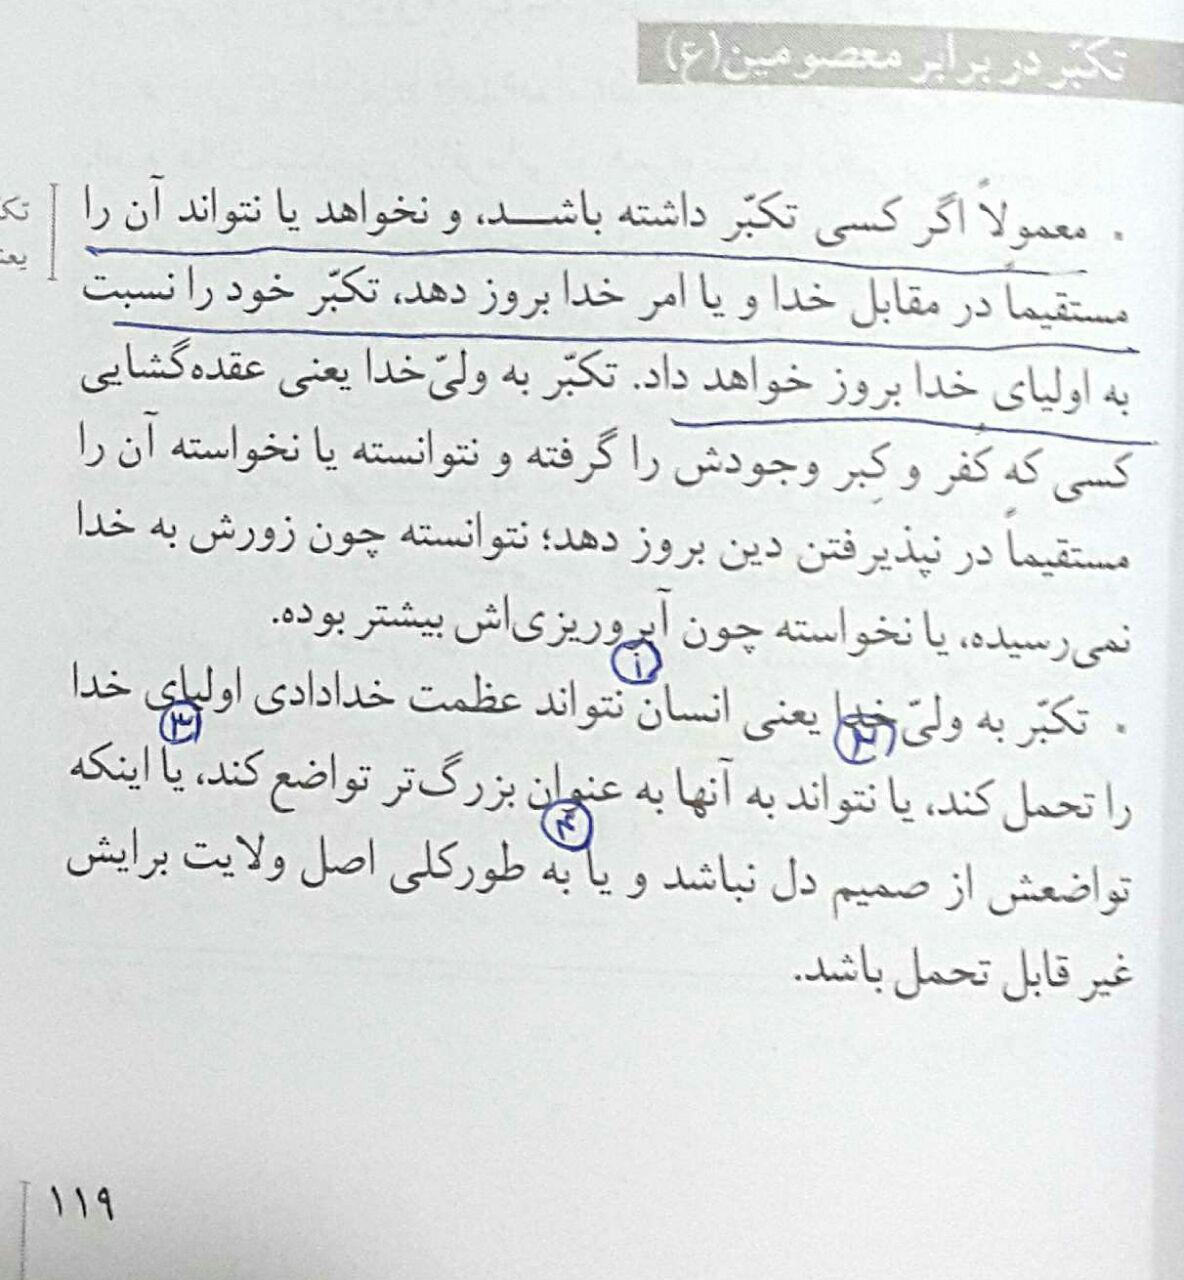 تکبّر در برابر معصومین(ع)
• معمولاً اگر کسی تکبّر داشته باشد، و نخواهد یا نتواند آن را
مستقیماً در مقابل خدا و یا امر خدا بروز دهد، تکبّر خود را نسبت
به اولیای خدا بروز خواهد داد. تکبّر به ولیّ‌خدا یعنی عقده‌گشایی
کسی که کُفر و کِبر وجودش را گرفته و نتوانسته یا نخواسته آن را
مستقیماً در نپذیرفتن دین بروز دهد؛ نتوانسته چون زورش به خدا
نمی‌رسیده، یا نخواسته چون آبروریزی‌اش بیشتر بوده.
۱
• تکبّر به ولیّ‌خدا یعنی انسان نتواند عظمت خدادادی اولیای خدا
۲ ۳
را تحمل کند، یا نتواند به آنها به عنوان بزرگ‌تر تواضع کند، یا اینکه
۴
تواضعش از صمیم دل نباشد و یا به طورکلی اصل ولایت برایش
غیر قابل تحمل باشد.
۱۱۹